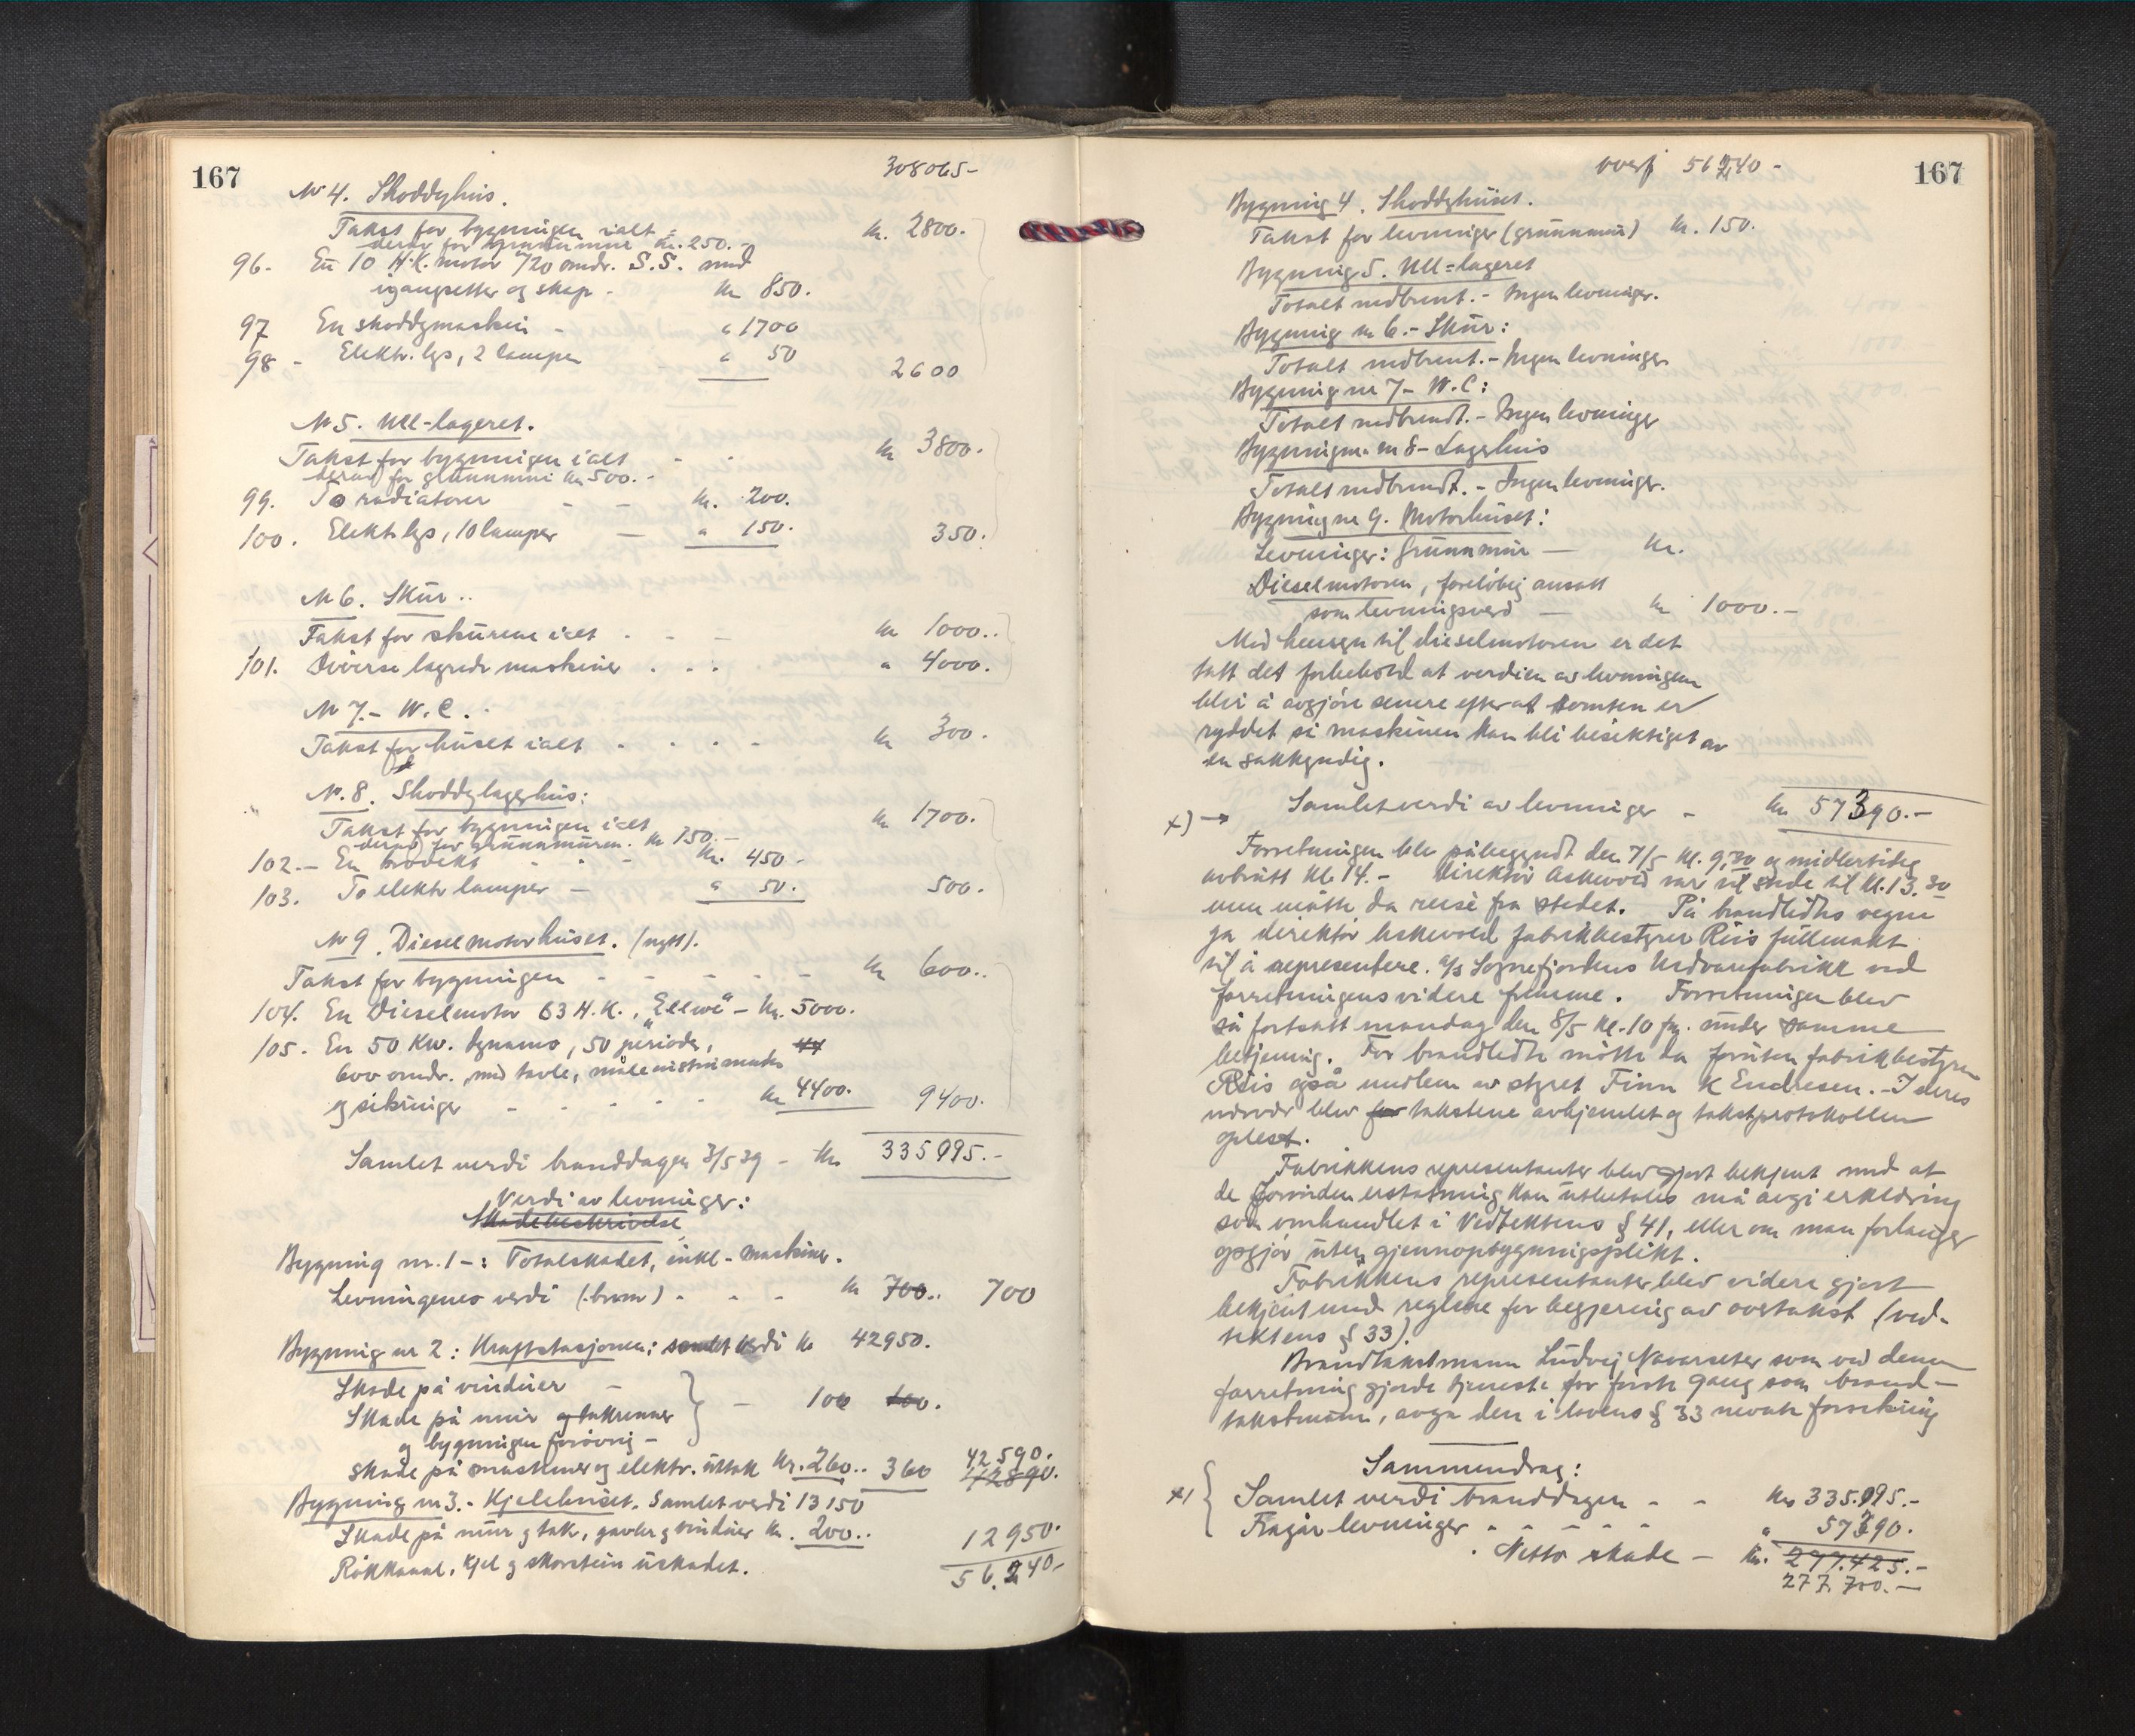 167
308065-
No 4. Shoddyhus.
Takst for bygningen ialt - kr. 2800.
derav for grunnmur kr. 250.-
96- En 10 H.K. motor 720 omdr. S.S. med
igangsetter og skap - kr 850.
97 En shoddymaskin - " 1700
98 - Elektr. lys, 2 lamper " 50 2600
No 5. Ull-lageret.
Takst for bygningen ialt - - kr 3800.
derav for grunnmur kr 500.-
99. To radiatorer - - kr. 200.
100. Elektr lys, 10 lamper — " 150. 350.
No 6. Skur..
Takst for skurene ialt - - - kr 1000..
101. Diverse lagrede maskiner . . . " 4000.
No 7.- W.C.
Takst for huset ialt . . . . kr 300.
No. 8. Shoddylagerhus:
Takst for bygningen ialt kr 1700.
derav for grunnmuren. kr 150.-
102.- En - - - kr. 450-
103. To elektr lamper - " 50. 500.
No 9. Dieselmotorhuset. (nytt).
Takst for bygningen - - - - - kr 600..
104. En Dieselmotor 63 H.K., "Ellwe" - kr. 5000.
105. En 50 Kw. dynamo, 50 perioder, 44
600 omdr., med tavle, måleinstrumenter
og sikringer - - - - - kr 4400. 9400.
Samlet verdi branddagen 3/5 39 - kr 335095.-
Verdi av levninger:
Skadebeskrivelse
Bygning nr. 1 -: Totalskadet, inkl. maskiner.
Levningenes verdi - - - kr 700.. 700
Bygning nr 2: Kraftstasjonen: samlet verdi kr 42950.
Skade på vinduer -
Skade på mur og takrenner - 100 100.
og bygningen forøvrig -
skade på maskiner og elektr. uttak kr. 260.. 360 42590.
42890.
Bygning nr 3.- Kjelehuset. Samlet verdi 13150
Skade på mur og tak, gavler og vinduer kr. 200.. 12950.
Rökkanal, kjel og skorstein uskadet. 56.240-
167
overf 56240-
Bygning 4. Shoddyhuset.
Takst for levninger (grunnmur) kr. 150.
Bygning 5. Ull=lageret
Totalt nedbrent.- Ingen levninger.
Bygning nr 6.- Skur:
Totalt nedbrent.- Ingen levninger
Bygning nr 7- W.C:
Totalt nedbrendt.- Ingen levninger
Bygningen nr 8- Lagerhus
Totalt nedbrendt.- Ingen levninger.
Bygning nr 9. Motorhuset:
Levninger: Grunnmur — kr.
Dieselmotoren, foreløbig ansatt
som levningsverd — kr 1000.-
Med hensyn til dieselmotoren er det
tatt det forbehold at verdien av levningene
blir å avgjøre senere efter at tomten er
ryddet så maskinen kan bli besiktiget av
en sakkyndig.
x) → Samlet verdi av levninger - kr 57390.-
Forretningen blev påbegyndt den 7/5 kl. 9,30 og midlertidig
avbrutt kl. 14.- Direktör Askevold var til stede til kl. 13.30
men måtte da reise fra stedet. På brandlidtes vegne
ga direktör Askevold fabrikkbestyrer Riis fullmakt
til å representere a/s Sognefjordens Uldvarefabrikk ved
forretningens videre fremme. Forretningen blev
så fortsatt mandag den 8/5 kl. 10 fm. under samme
betjening. For brandlidte møtte da foruten fabrikbestyrer
Riis også medlem av styret Finn K Endresen.- I deres
nærvær blev for takstene avhjemlet og takstprotokollen
oplest.
Fabrikkens representanter blev gjort bekjent med at
de forinden erstatning kan utbetales må avgi erklæring
som omhandlet i Vedtektens § 41, eller om man forlanger
opgjør uten gjennopbygningsplikt.
Fabrikkens representanter blev videre gjort
bekjent med reglene for begjæring av overtakst (ved-
tektens § 33).
Brandtakstmann Ludvig Navarseter som ved denne
forretning gjorde tjeneste for første gang som brand-
takstmann, avga den i lovens § 33 nevnte forsikring
Sammendrag:
x) Samlet verdi branddagen - - kr 335.095.-
Fragår levninger - - - - - " 57390.
Netto skade - kr. 277.425.-
277.700.-